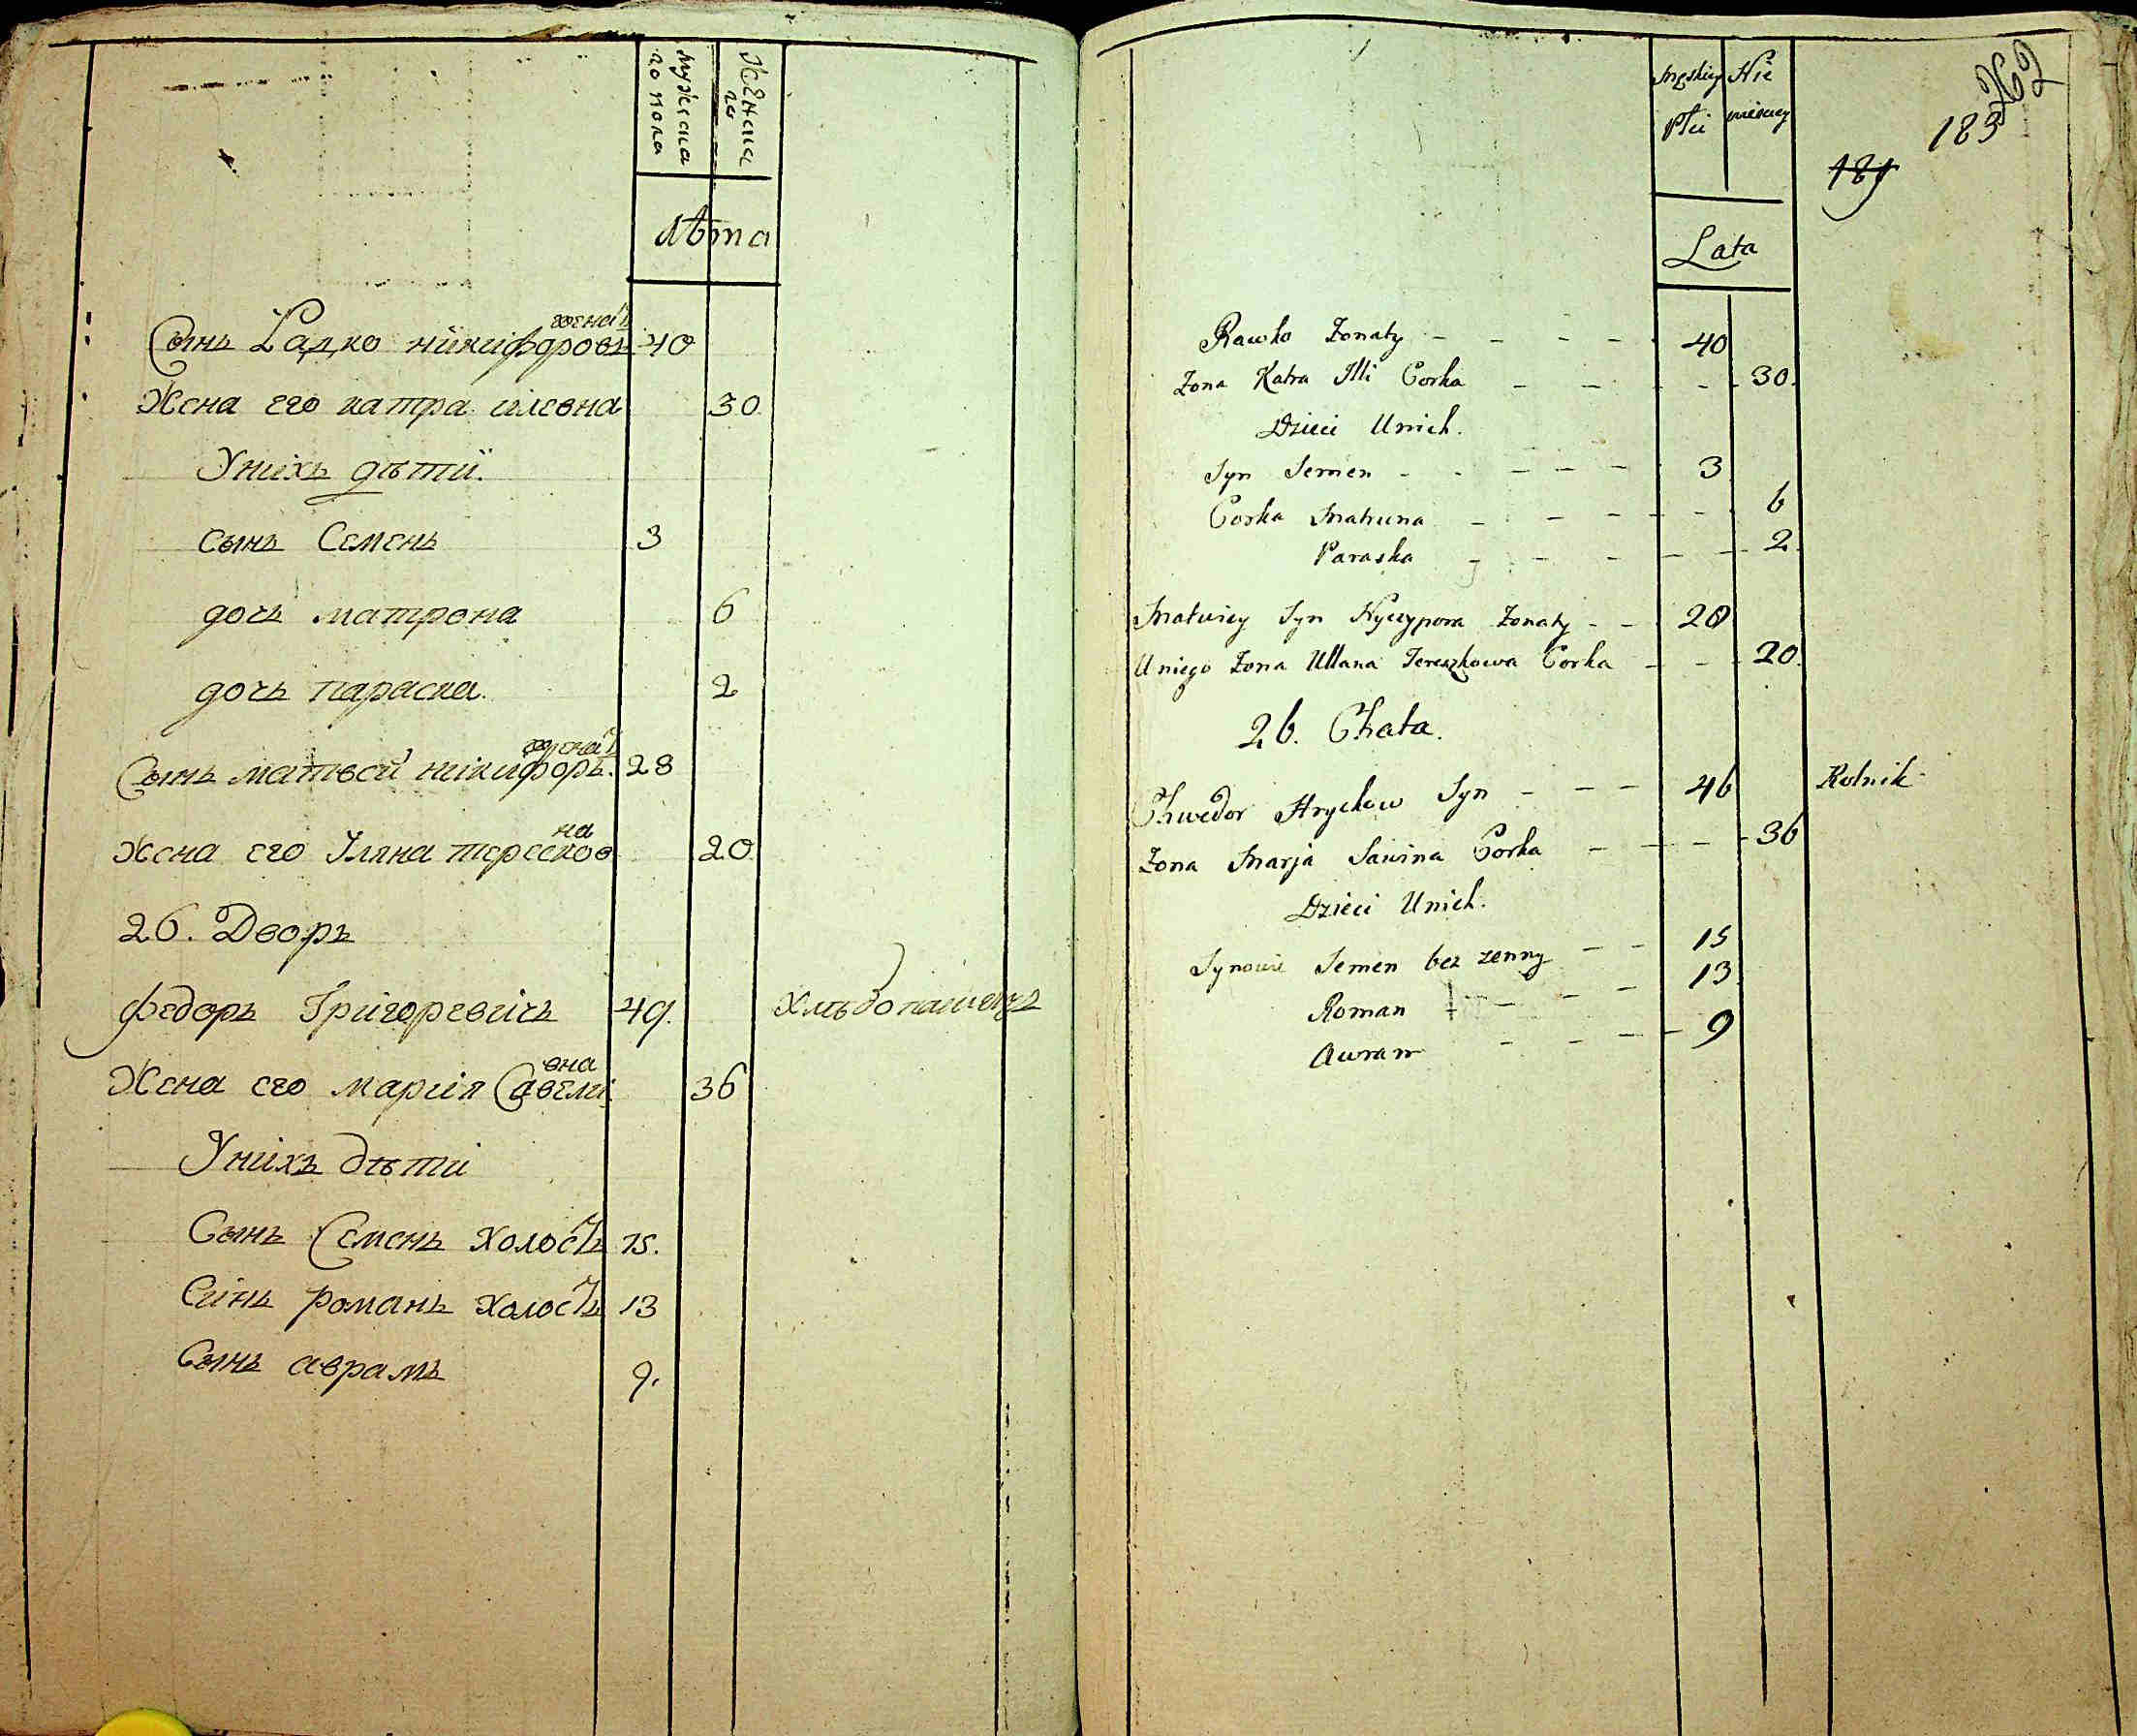 мужеска
го пола
Женска
го
лѣта
женатъ
Сынъ Радко никифоровъ 40
Жена его катра илевна 30.
Унихъ дѣти.
сынъ Семенъ 3
дочь матрона 6
дочь параска. 2
женатъ
Сынъ матвей никифоръ. 28
на
жена его Уляна тересков 20
26. Дворъ
федоръ Григоревичъ 49. Хлѣбопашецъ
вна
Жена его мария Савели 36
Унихъ дѣти
Сынъ Семенъ холостъ 15.
Синъ романъ холостъ 13
Сынъ аврамъ 9.
262
183
Męskiey Nie
Płci wieściey
Lata
Rawko Zonaty 40
Zona Katra Illi Corka 30.
Dzieci Unich.
Syn Semen 3
Corka Matruna 6
Paraska 2.
Matwiey Syn Nyczypora Zonaty 28
Uniego Zona Ullana Tereszkowa Corka 20.
26. Chata.
Chwedor Hryckow Syn 46 Rolnik
Zona Marja Sawina Corka 36
Dzieci Unich.
Synowie Semen bez zenny 15
Roman 13
Awram 9